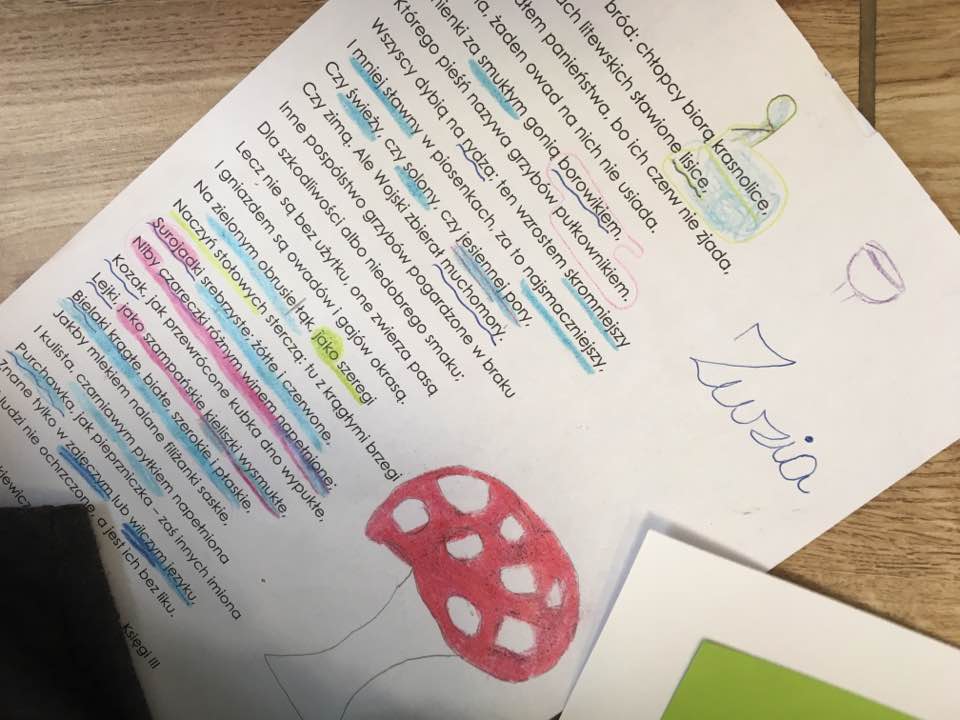 bród: chłopcy biorą krasnolice,
ach litewskich sławione lisice,
łem panieństwa, bo ich czerw nie zjada,
a, żaden owad na nich nie usiada.
nienki za smukłym gonią borowikiem,
Którego pieśń nazywa grzybów pułkownikiem.
Wszyscy dybią na rydza: ten wzrostem skromniejszy
I mniej sławny w piosenkach, za to najsmaczniejszy,
Czy świeży, czy solony, czy jesiennej pory,
Czy zimą. Ale Wojski zbierał muchomory.
Inne pospólstwo grzybów pogardzone w braku
Dla szkodliwości albo niedobrego smaku;
Lecz nie są bez użytku, one zwierza pasą
I gniazdem są owadów i gajów okrasą.
Na zielonym obrusie łąk, jako szeregi
Naczyń stołowych sterczą: tu z krągłymi brzegi
Surojadki srebrzyste, żółte i czerwone,
Niby czareczki różnym winem napełnione;
Kozak, jak przewrócone kubka dno wypukłe,
Lejki, jako szampańskie kieliszki wysmukłe,
Bielaki krągłe, białe, szerokie i płaskie,
Jakby mlekiem nalane filiżanki saskie,
I kulista, czarniawym pyłkiem napełniona
Purchawka, jak pieprzniczka – zaś innych imiona
znane tylko w zajęczym lub wilczym języku,
ludzi nie ochrzczone, a jest ich bez liku.
kiewicz
Księgi III
Zuzia